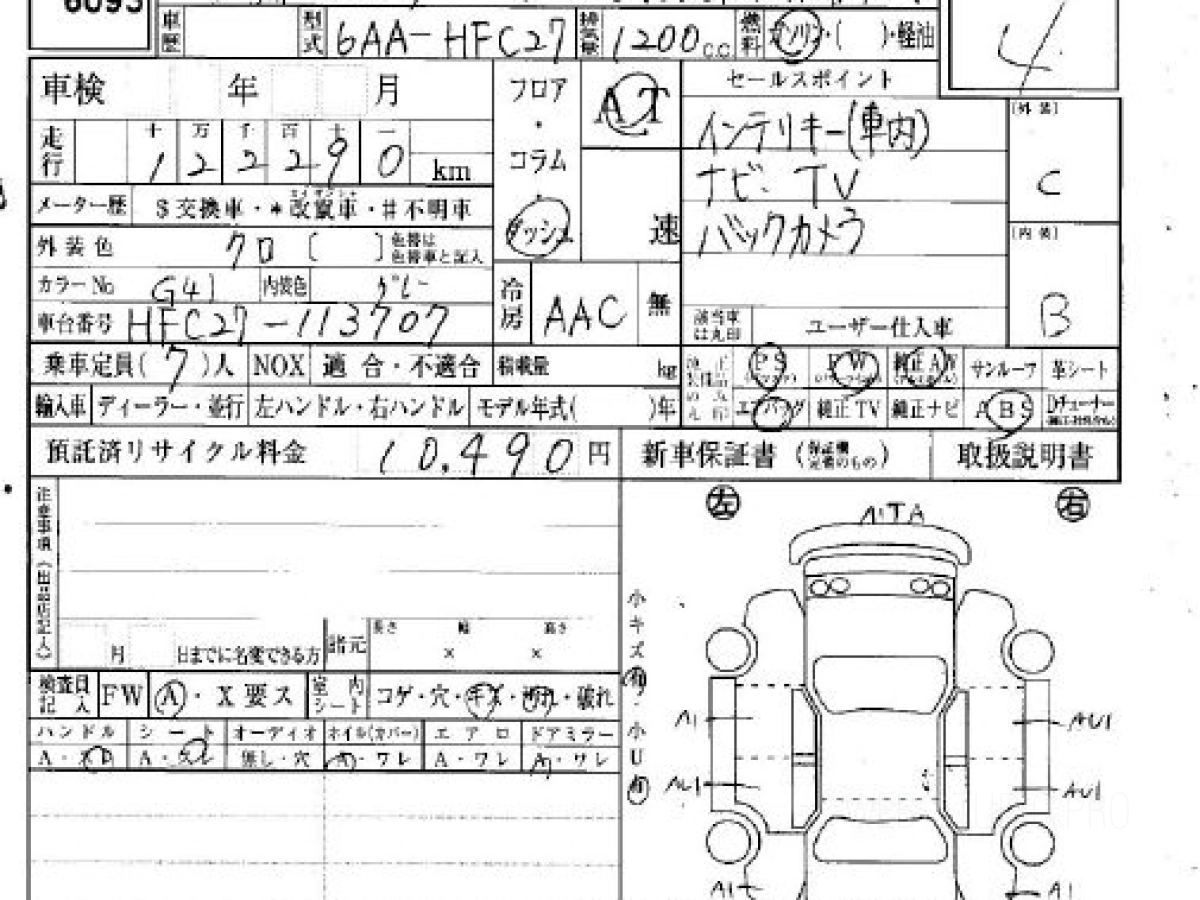 6093
車歴 型式 6AA-HFC27 排気量 1200c.c. 燃料 ガソリン・( )・軽油
4
車検 年 月 フロア・コラム・ダッシュ AT 速 セールスポイント
インテリキー(車内)
ナビ TV
バックカメラ
[外装]
C
[内装]
B
走行 十 万 千 百 十 一
1 2 2 2 9 0 km
メーター歴 $交換車・*改竄車・#不明車
外装色 クロ ( ) 色替は色替車と記入
カラーNo G41 内装色 グレー
冷房 AAC 無
車台番号 HFC27-113707
該当車は丸印 ユーザー仕入車
乗車定員(7)人 NOX 適合・不適合 積載量 kg
PS PW 純正AW サンルーフ 革シート
輸入車 ディーラー・並行 左ハンドル・右ハンドル モデル年式( )年
エアバッグ 純正TV 純正ナビ ABS Dチューナー
預託済リサイクル料金 10,490円 新車保証書 取扱説明書
注意事項(出品店記入)
左 右
月 日までに名変できる方 諸元 長さ × 幅 × 高さ
検査員記入 FW A・X要ス 室内シート コゲ・穴・キズ・汚れ・破れ
ハンドル シート オーディオ ホイル(カバー) エアロ ドアミラー
無し・穴 A・ワレ A・ワレ A・ワレ
小キズ有・小U有
A1
AU1
AU1
AU1
A1
A1